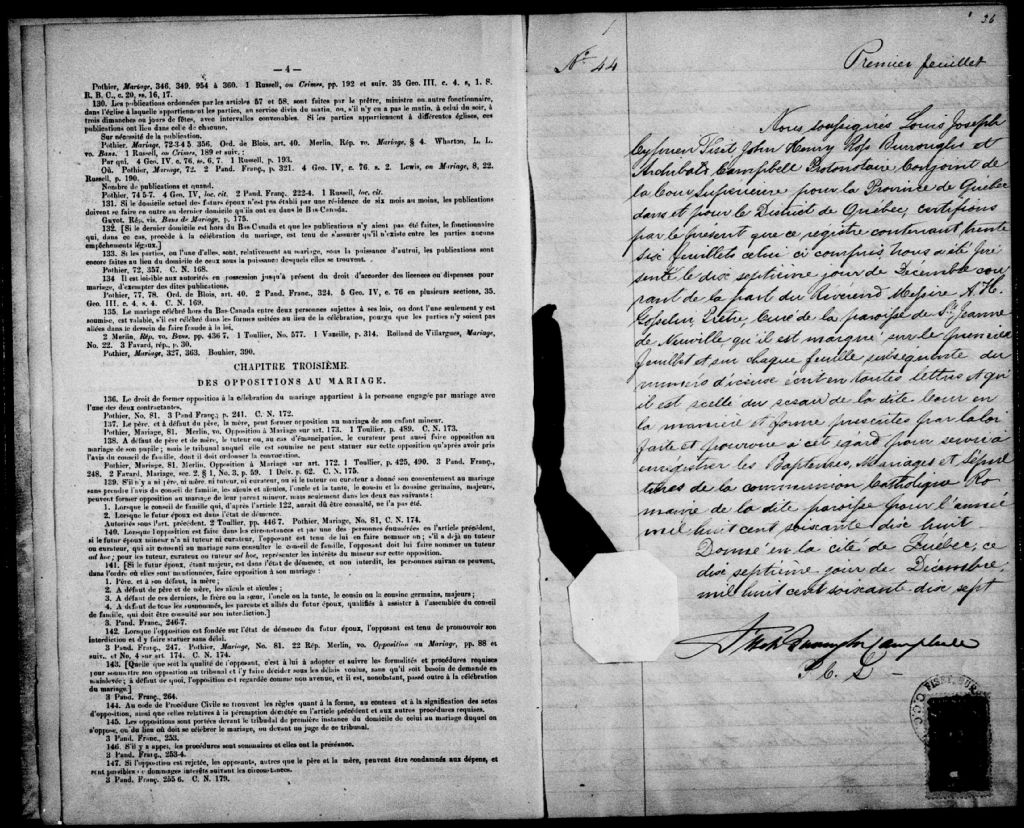 — 4 —
Pothier, Mariage, 346, 349, 954 à 360. 1 Russell, on Crimes, pp. 192 et suiv. 35 Geo. III. c. 4. s, 1. S.
R. B. C., c. 20, ss. 16, 17.
130. Les publications ordonnées par les articles 57 et 58, sont faites par le prêtre, ministre ou autre fonctionnaire,
dans l'église à laquelle appartiennent les parties, au service divin du matin, ou, s'il n'y en a pas le matin, à celui du soir, à
trois dimanches ou jours de fêtes, avec intervalles convenables. Si les parties appartiennent à différentes églises, ces
publications ont lieu dans celle de chacune.
Sur nécessité de la publication.
Pothier, Mariage, 72-3-4 5. 356. Ord. de Blois, art. 40. Merlin, Rép. vo. Mariage, § 4. Wharton, L. L.
vo. Bans. 1 Russell, on Crimes, 189 et suiv.;
Par qui. 4 Geo. IV. c. 76, ss. 6, 7. 1 Russell, p. 193.
Où. Pothier, Mariage, 72. 2 Pand. Franç., p. 321. 4 Geo. IV, c. 76. s. 2. Lewis, on Mariage, 8, 22.
Russell, p. 190.
Nombre de publications et quand.
Pothier, 74 5-7. 4 Geo. IV, loc. cit. 2 Pand. Franç. 222-4. 1 Russell, loc. cit.
131. Si le domicile actuel des futurs époux n'est pas établi par une résidence de six mois au moins, les publications
doivent se faire en outre au dernier domicile qu'ils ont eu dans le Bas-Canada.
Guyot. Rép. vis. Bans de Mariage, p. 175.
132. [Si le dernier domicile est hors du Bas-Canada et que les publications n'y aient pas été faites, le fonctionnaire
qui, dans ce cas, procède à la célébration du mariage, est tenu de s'assurer qu'il n'existe entre les parties aucuns
empêchements légaux.]
133. Si les parties, ou l'une d'elles, sont, relativement au mariage, sous la puissance d'autrui, les publications sont
encore faites au lieu du domicile de ceux sous la puissance desquels elles se trouvent.
Pothier, 72, 357. C. N. 168.
134 Il est loisible aux autorités en possession jusqu'à présent du droit d'accorder des licences ou dispenses pour
mariage, d'exempter des dites publications.
Pothier, 77, 78. Ord. de Blois, art. 40. 2 Pand. Franc., 324. 5 Geo. IV, c. 76 en plusieurs sections, 35.
Geo. III. c. 4. s. 4. C. N. 169.
135. Le mariage célébré hors du Bas-Canada entre deux personnes sujettes à ses lois, ou dont l'une seulement y est
soumise, est valable, s'il est célébré dans les formes usitées au lieu de la célébration, pourvu que les parties n'y soient pas
allées dans le dessein de faire fraude à la loi.
2 Merlin, Rép. vo. Bans, pp. 436 7. 1 Toullier, No. 577. 1 Vazeille, p. 314. Rolland de Villargues, Mariage,
No. 22. 3 Favard, rép., p. 30.
Pothier, Mariage, 327, 363. Bouhier, 390.
CHAPITRE TROISIÈME.
DES OPPOSITIONS AU MARIAGE.
136. Le droit de former opposition à la célébration du mariage appartient à la personne engagée par mariage avec
l'une des deux contractantes.
Pothier, No. 81. 3 Pand Franç.; p. 241. C. N. 172.
137. Le père, et à défaut du père, la mère, peut former opposition au mariage de son enfant mineur.
Pothier, Mariage, 81. Merlin, vo. Opposition à Mariage sur art. 173. 1 Toullier, p. 489. C. N. 173.
138. A défaut de père et de mère, le tuteur ou, au cas d'émancipation, le curateur peut aussi faire opposition au
mariage de son pupile; mais le tribunal auquel elle est soumise ne peut statuer sur cette opposition qu'après avoir pris
l'avis du conseil de famille, dont il doit ordonner la convocation.
Pothier, Mariage, 81. Merlin, Opposition à Mariage sur art. 172. 1 Toullier, p. 425, 490. 3 Pand. Franç.,
248. 2 Favard, Mariage, sec. 2. § 1, No. 3, p. 59. 1 Delv. p. 62. C. N. 175.
139. S'il n'y a ni père, ni mère, ni tuteur, ni curateur, ou si le tuteur ou curateur a donné son consentement au mariage
sans prendre l'avis du conseil de famille, les aïeuls et aïeules, l'oncle et la tante, le cousin et la cousine germains, majeurs,
peuvent former opposition au mariage de leur parent mineur, mais seulement dans les deux cas suivants:
1. Lorsque le conseil de famille qui, d'après l'article 122, aurait dû être consulté, ne l'a pas été.
2. Lorsque le futur époux est dans l'état de démence.
Autorités sous l'art. précédent. 2 Toullier, pp. 446 7. Pothier, Mariage, No. 81, C. N. 174.
140. Lorsque l'opposition est faite dans les circonstances et par une des personnes énumérées en l'article précédent,
si le futur époux mineur n'a ni tuteur ni curateur, l'opposant est tenu de lui en faire nommer un; s'il a déjà un tuteur
ou curateur, qui ait consenti au mariage sans consulter le conseil de famille, l'opposant doit lui faire nommer un tuteur
ad hoc; pour les tuteur, curateur ou tuteur ad hoc, représenter les intérêts du mineur sur cette opposition.
141. [Si le futur époux, étant majeur, est dans l'état de démence, et non interdit, les personnes suivantes peuvent,
dans l'ordre où elles sont mentionnées, faire opposition à son mariage:
1. Père, et à son défaut, la mère;
2. A défaut de père et de mère, les aïeuls et aïeules;
3. A défaut de ces derniers, le frère ou la sœur, l'oncle ou la tante, le cousin ou la cousine germains, majeurs;
4. A défaut de tous les susnommés, les parents et alliés du futur époux, qualifiés à assister à l'assemblée du conseil
de famille, qui doit être consulté sur son interdiction.]
3 Pand. Franç., 246-7.
142. Lorsque l'opposition est fondée sur l'état de démence du futur époux, l'opposant est tenu de promouvoir son
interdiction et d'y faire statuer sans délai.
3 Pand. Franç., 247. Pothier, Mariage, No. 81. 22 Rép. Merlin, vo. Opposition au Mariage, pp. 88 et
suiv. et No. 4 sur art. 174. C. N. 174.
143. [Quelle que soit la qualité de l'opposant, c'est à lui à adopter et suivre les formalités et procédures requises
pour soumettre son opposition au tribunal et l'y faire décider sous les délais voulus, sans qu'il soit besoin de demande en
mainlevée; à défaut de quoi, l'opposition est regardée comme non avenue, et il est, nonobstant, passé outre à la célébration
du mariage.]
3 Pand. Franç., 264.
144. Au code de Procédure Civile se trouvent les règles quant à la forme, au contenu et à la signification des actes
d'opposition, ainsi que celles relatives à la péremption décrétée en l'article précédent et aux autres procédures requises.
145. Les oppositions sont portées devant le tribunal de première instance du domicile de celui au mariage duquel on
s'oppose, ou du lieu où doit se célébrer le mariage, ou devant un juge de ce tribunal.
3 Pand. Franc., 253.
146. S'il y a appel, les procédures sont sommaires et elles ont la préséance.
3 Pand. Franç., 253-4.
147. Si l'opposition est rejetée, les opposants, autres que le père et la mère, peuvent être condamnés aux dépens, et
sont passibles de dommages intérêts suivant les circonstances.
3 Pand. Franc. 255 6. C. N. 179.
36
No 44
Premier feuillet
Nous soussignés Louis Joseph
Cyprien Fiset John Henry Ross Burroughs et
Archibald Campbell Protonotaire Conjoint de
la Cour Supérieure pour la Province de Québec
dans et pour le District de Québec, certifions
par le présent que ce registre contenant trente
six feuillets celui ci compris, nous a été pré
senté le dix septième jour de Décembre cou
rant de la part du Révérend Messire A. H.
Gosselin, Prêtre, Curé de la paroisse de St. Jeanne
de Neuville qu'il est marqué sur le premier
feuillet et sur chaque feuille subséquente du
numéro d'icelui écrit en toutes lettres et qu'
il est scellé du sceau de la dite Cour en
la manière et forme prescrites par la loi
faite et pourvue à cet égard pour servir à
enregistrer les Baptêmes, Mariages et Sépul
tures de la communion Catholique Ro
maine de la dite paroisse pour l'année
mil huit cent soixante dix huit
Donné en la cité de Québec, ce
dix septième jour de Décembre,
mil huit cent soixante dix sept
Fiset Burroughs Campbell
P. C. S.
FISET, BUR